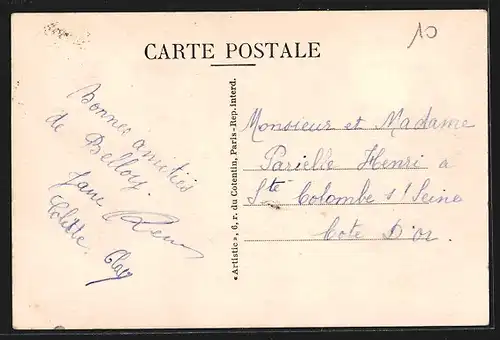 10
CARTE POSTALE
Bonnes amitiés
de Belloy.
Jane
Colette.
«Artistic», 6, r. du Cotentin, Paris-Rep. interd.
Monsieur et Madame
Parielle Henri a
Ste Colombe s/ Seine
Cote D'or.